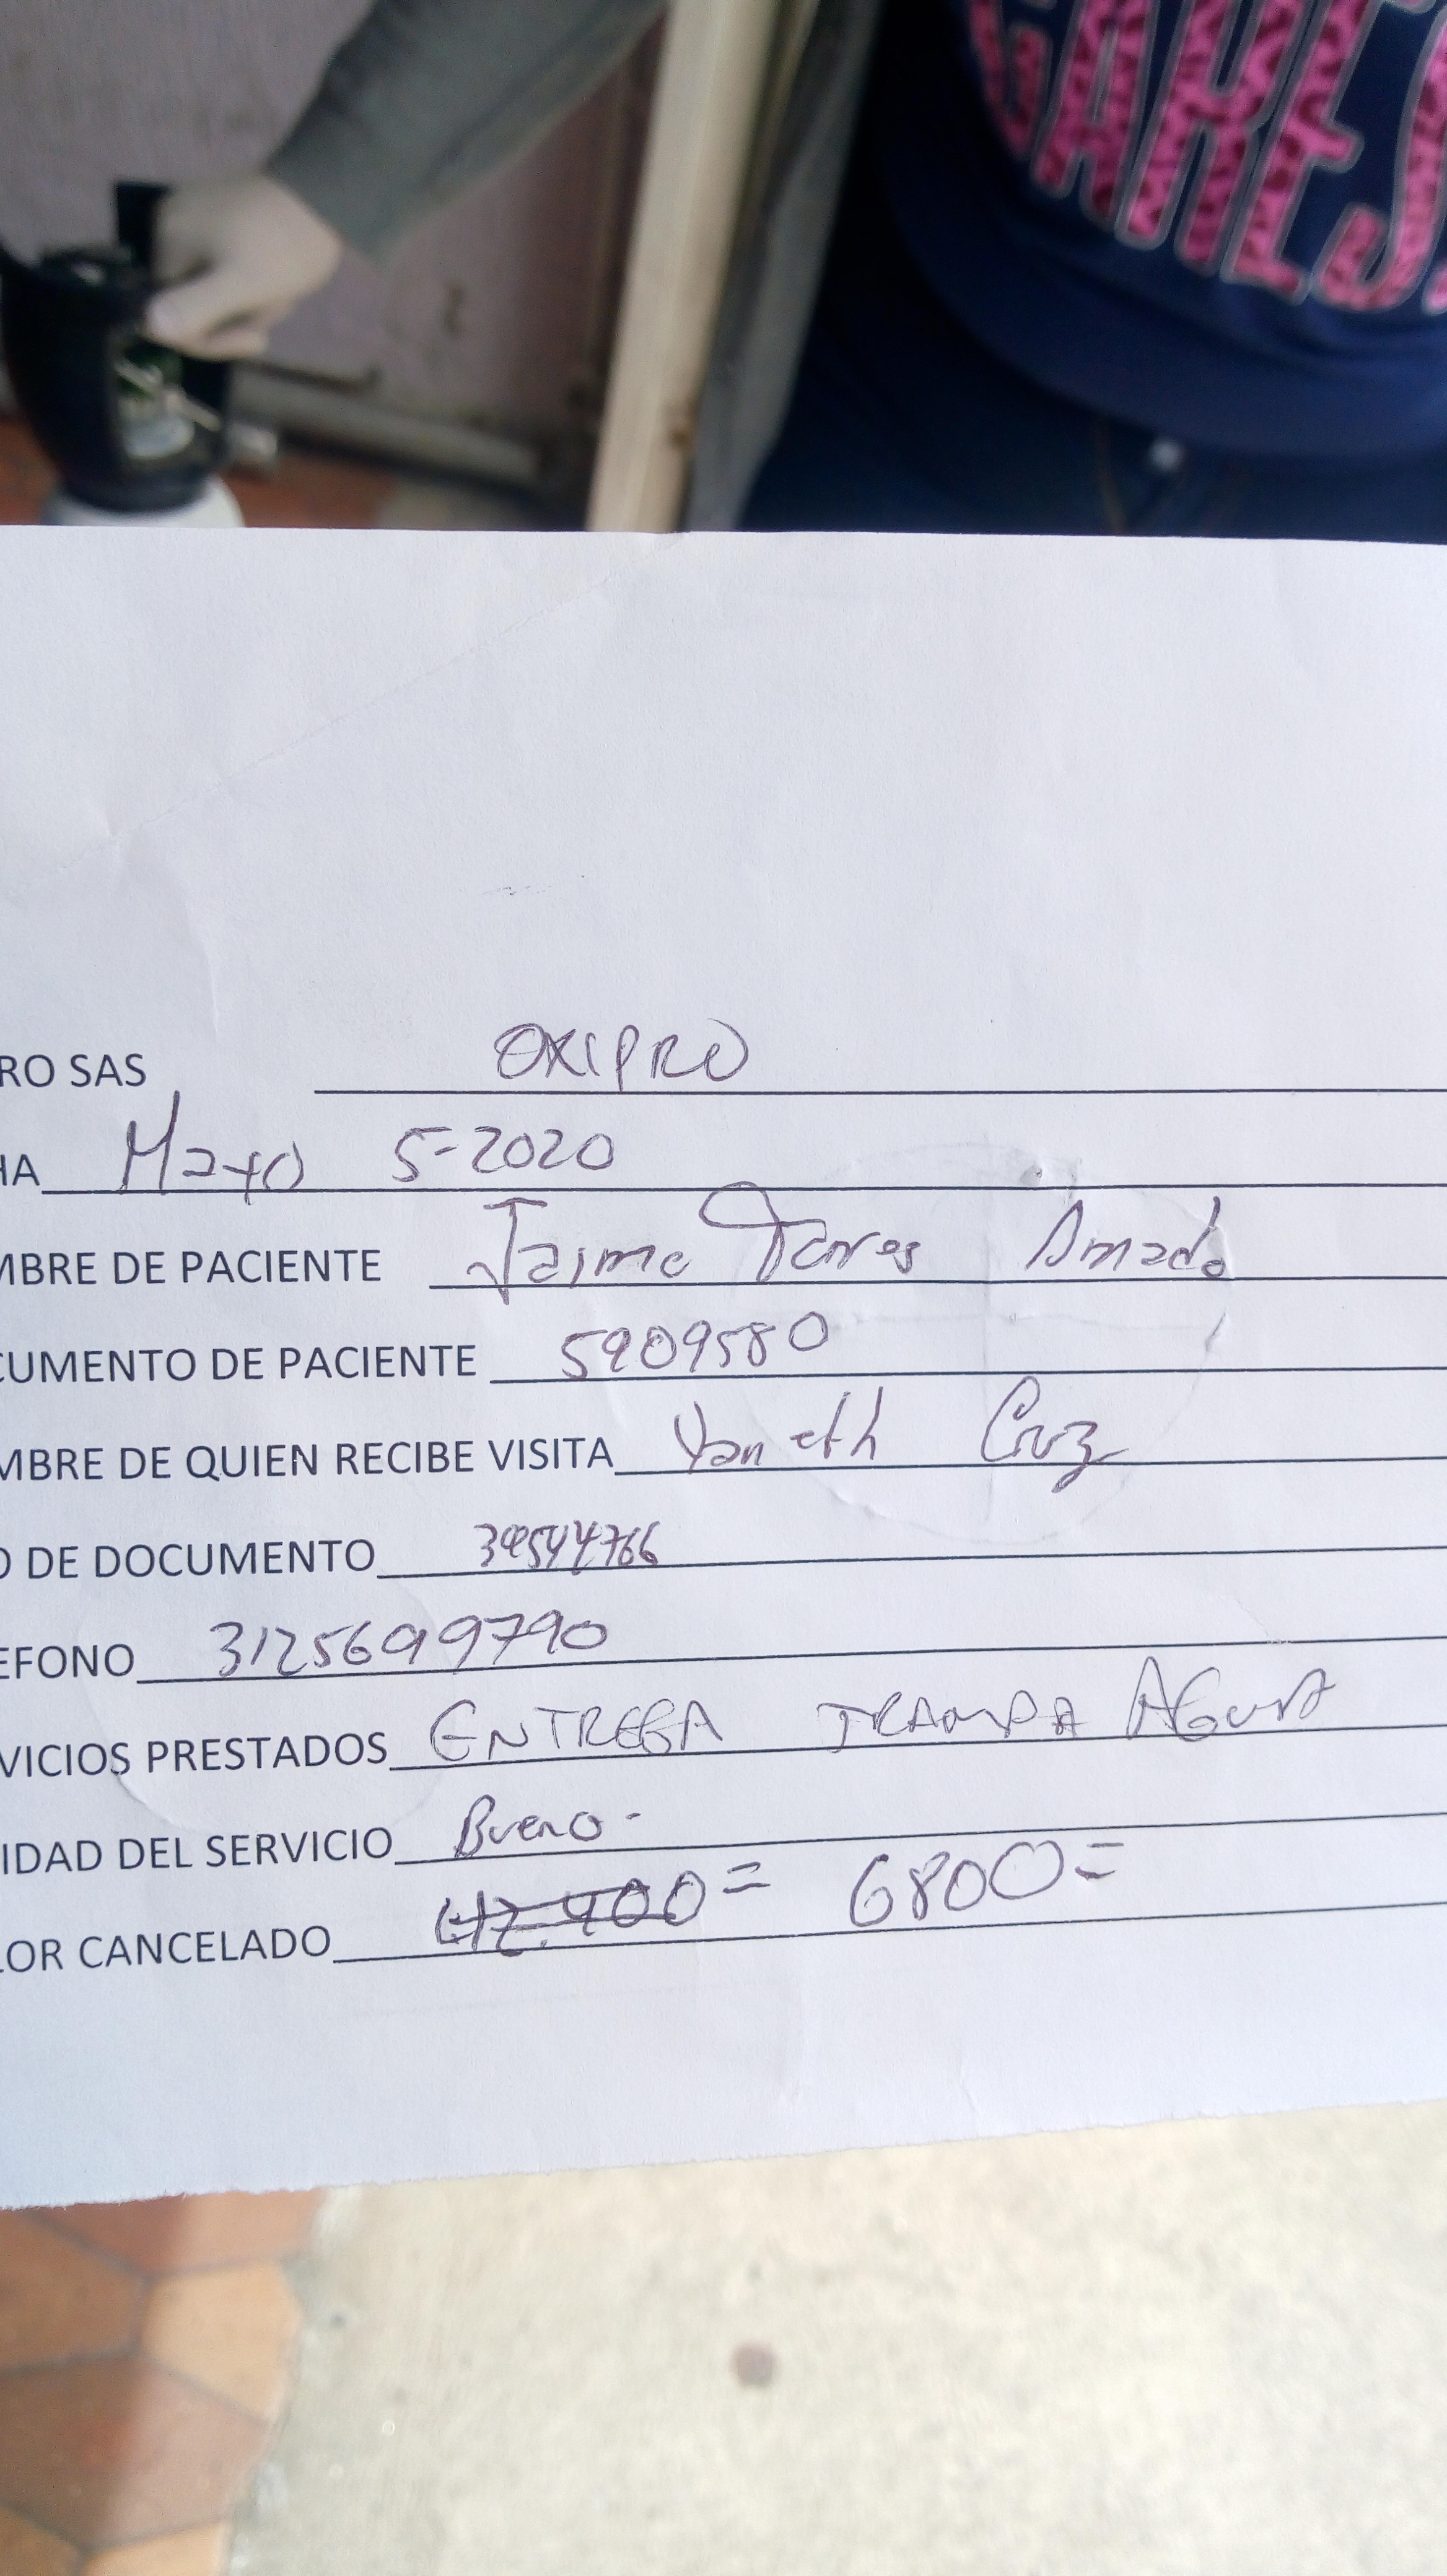 CARES.
RO SAS OXIPRO
HA Mayo 5-2020
MBRE DE PACIENTE Jaime Torres Amado
CUMENTO DE PACIENTE 5909580
MBRE DE QUIEN RECIBE VISITA Yaneth Cruz
O DE DOCUMENTO 39544766
EFONO 3125699790
VICIOS PRESTADOS ENTREGA TRAMPA AGUA
IDAD DEL SERVICIO Bueno -
LOR CANCELADO 42.400= 6800=